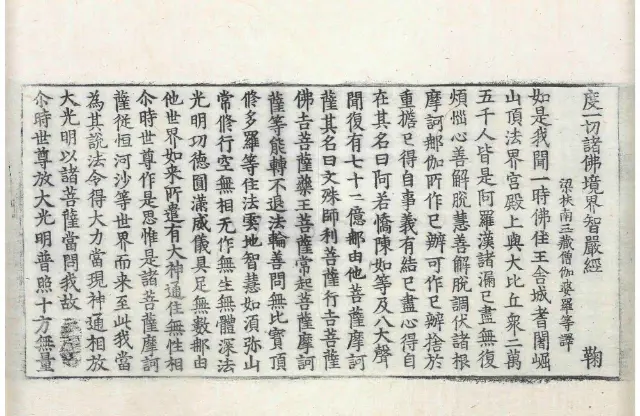 度一切諸佛境界智嚴經　鞠
梁扶南三藏僧伽婆羅等譯
如是我聞一時佛住王舍城耆闍崛
山頂法界宮殿上與大比丘衆二萬
五千人皆是阿羅漢諸漏已盡無復
煩惱心善解脫慧善解脫調伏諸根
摩訶那伽所作已辦可作已辦捨於
重擔已得自事義有結已盡心得自
在其名曰阿若憍陳如等及八大聲
聞復有七十二億那由他菩薩摩訶
薩其名曰文殊師利菩薩行吉菩薩
佛吉菩薩藥王菩薩常起菩薩摩訶
薩等能轉不退法輪善問無比寶頂
修多羅等住法雲地智慧如須弥山
常修行空無相无作無生無體深法
光明功德圓滿威儀具足無數那由
他世界如來所遣有大神通住無性相
尒時世尊作是思惟是諸菩薩摩訶
薩從恒河沙等世界而來至此我當
為其說法令得大力當現神通相放
大光明以諸菩薩當問我故
尒時世尊放大光明普照十方無量